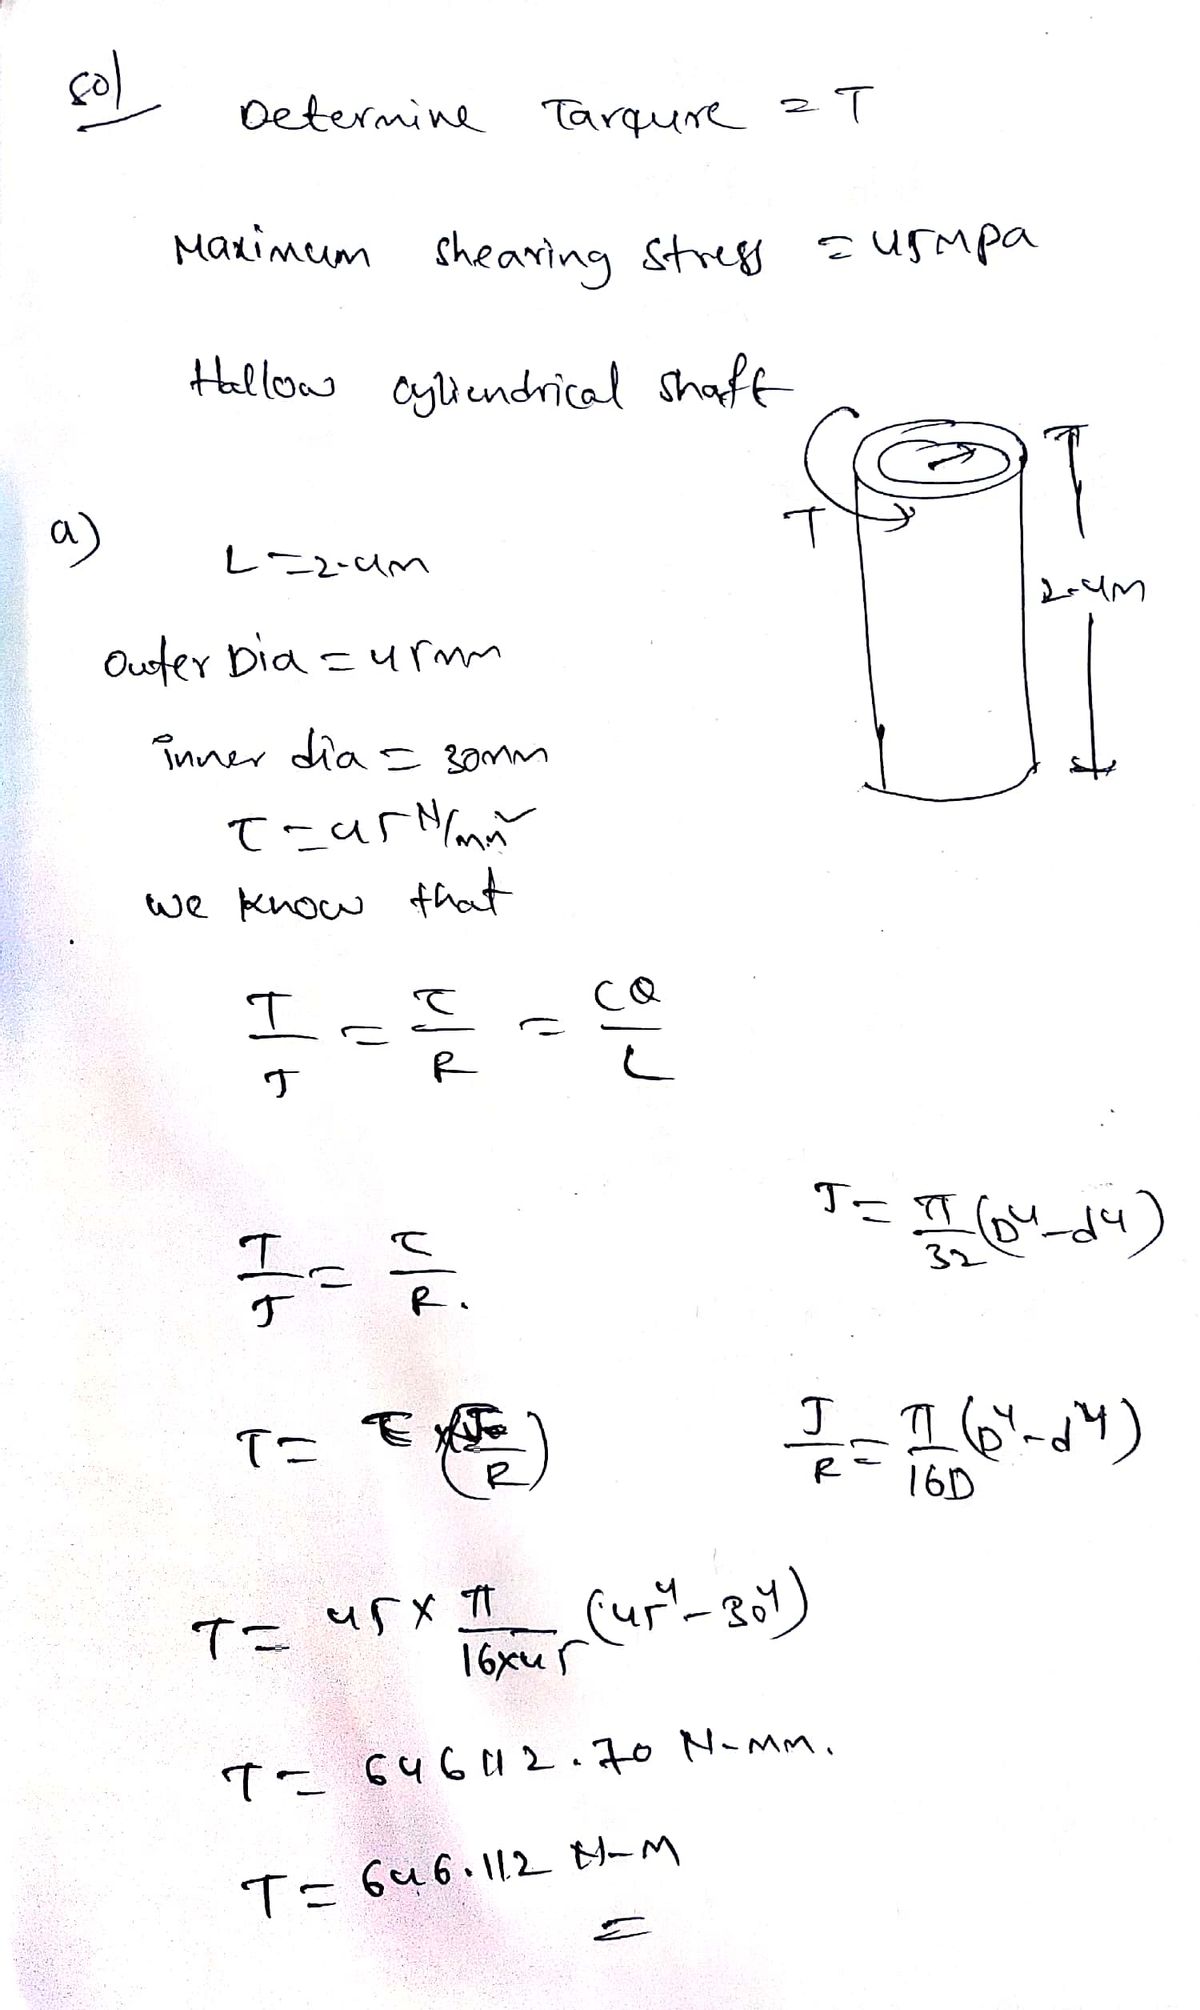 Sol
Determine Tarqure = T
Maximum shearing stress = 45MPa
Hallow cyliendrical shaft
T
2.4m
a)
L = 2.4m
Outer Dia = 45mm
inner dia = 30mm
τ = 45 N/mm²
we know that
T/J = τ/R = CQ/L
T/J = τ/R.
J = π/32 (D⁴-d⁴)
T = τ × (J/R)
J/R = π/16D (D⁴-d⁴)
T = 45 × π/16×45 (45⁴-30⁴)
T = 646112.70 N-mm.
T = 646.112 N-M